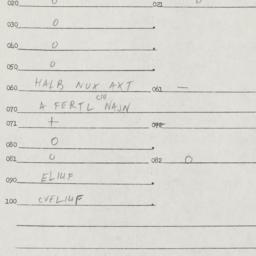 020. 0 021. 0
030. 0
040. 0
050. 0
060. HALB NUX AXT 061. —
070. A FERTL NAJN
071. + 072.
080. 0
081. 0 082. 0
090. ELIUF
100. CVELIUF